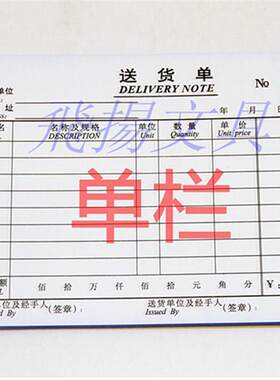 送货单
DELIVERY NOTE
No
单位
址
年 月
名 名称及规格 单位 数量 单价
DESCRIPTION Unit Quantity Unit price
飛揚文具
单栏
额 佰 拾 万 仟 佰 拾 元 角 分 ¥:
单位及经手人(签章): 送货单位及经手人(签章):
By Issued By